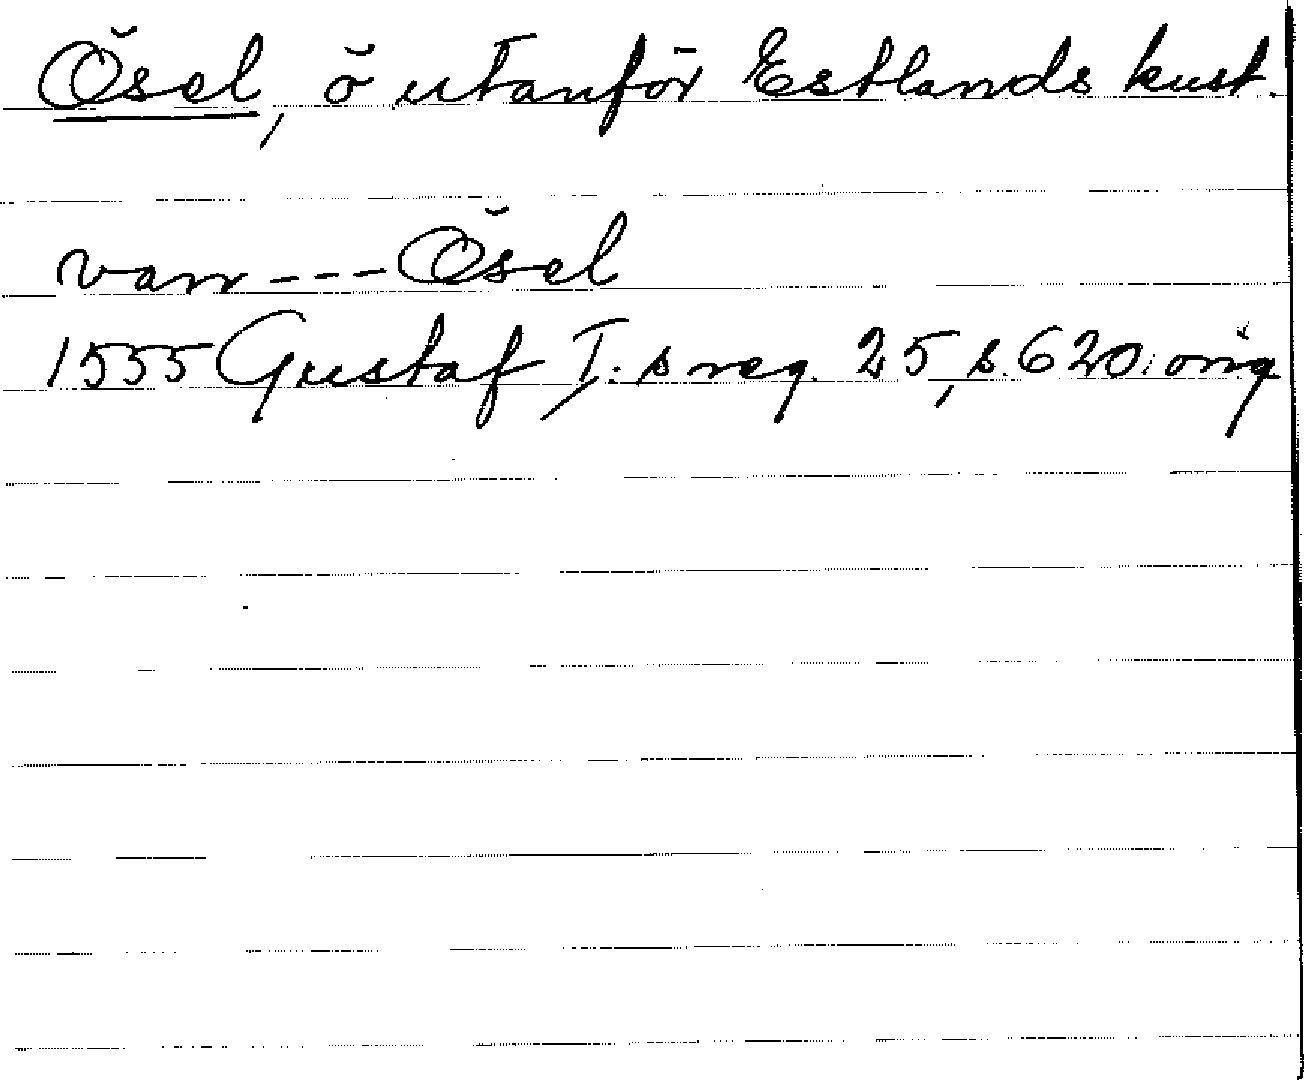 Ösel, ö utanför Estlands kust.
van --- Ösel
1555 Gustaf I:s reg. 25, s. 620. orig